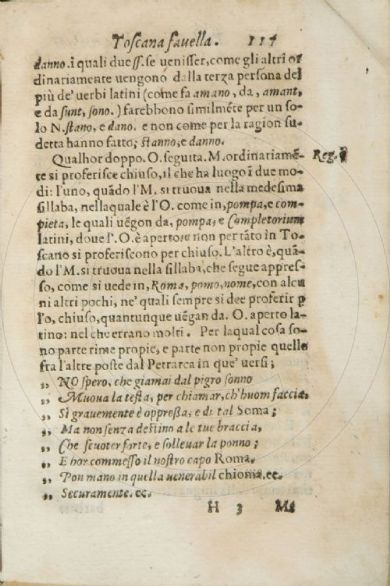 Toscana fauella. 114
danno. i quali due ss. se venisser, come gli altri or
dinariamente uengono dalla terza persona del
più de' uerbi latini (come fa amano, da, amant,
e da sunt, sono.) farebbono similmẽte per un so
lo N. stano, e dano. e non come per la ragion su
detta hanno fatto; stanno; e danno.
Qualhor doppo. O. seguita. M. ordinariamẽ- Reg.
te si proferisce chiuso, il che ha luogo ĩ due mo
di: l'uno, quãdo l'M. si truoua nella medesima
sillaba, nella quale è l'O. come in, pompa, e com
pieta, le quali uẽgon da, pompa, e Completorium
latini, doue l'. O. è aperto: e non per tãto in To
scano si proferiscono per chiuso. L'altro è, quã-
do l'M. si truoua nella sillaba, che segue appres-
so, come si uede in, Roma, pomo, nome, con alcu
ni altri pochi, ne' quali sempre si dee proferir p
l'o, chiuso, quantunque uẽgan da. O. aperto la
tino: nel che errano molti. Per la qual cosa so
no parte rime propie, e parte non propie quelle
fra l'altre poste dal Petrarca in que' uersi;
„ NO spero, che giamai dal pigro sonno
„ Muoua la testa, per chiamar, ch'huom faccia,
„ Sì grauemente è oppressa, e di tal Soma;
„ Ma non senza destino a le tue braccia,
„ Che scuoter forte, e solleuar la ponno;
„ E hor commesso il nostro capo Roma.
„ Pon mano in quella uenerabil chioma, ec.
„ Securamente. ec.
H 3 Ma